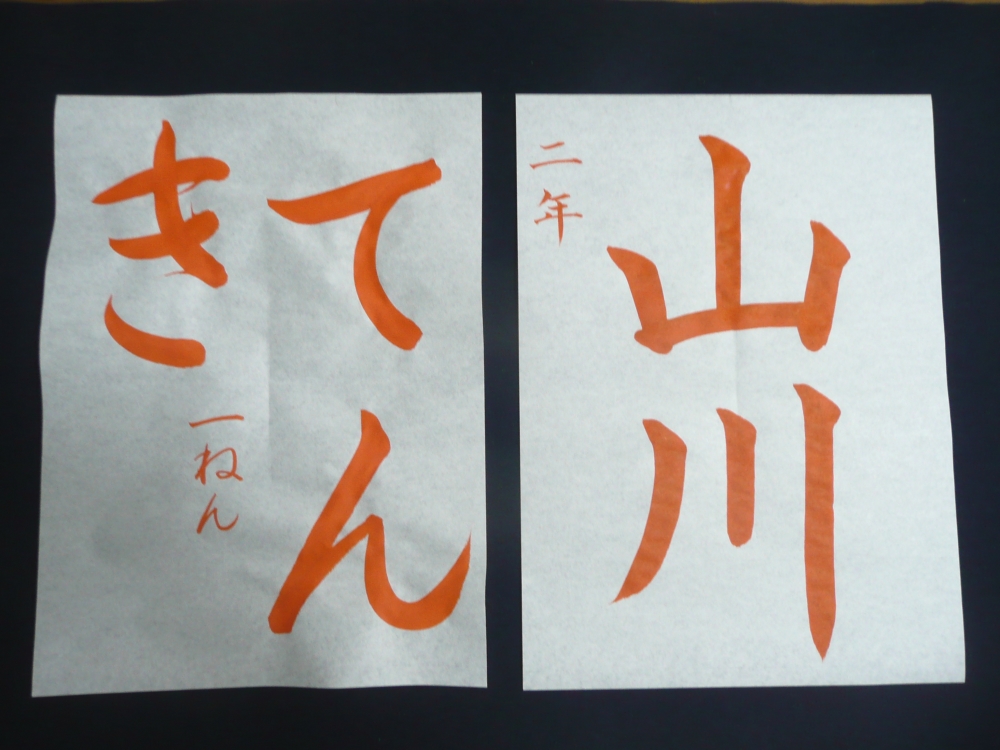 山川
二年
てん
き
一ねん